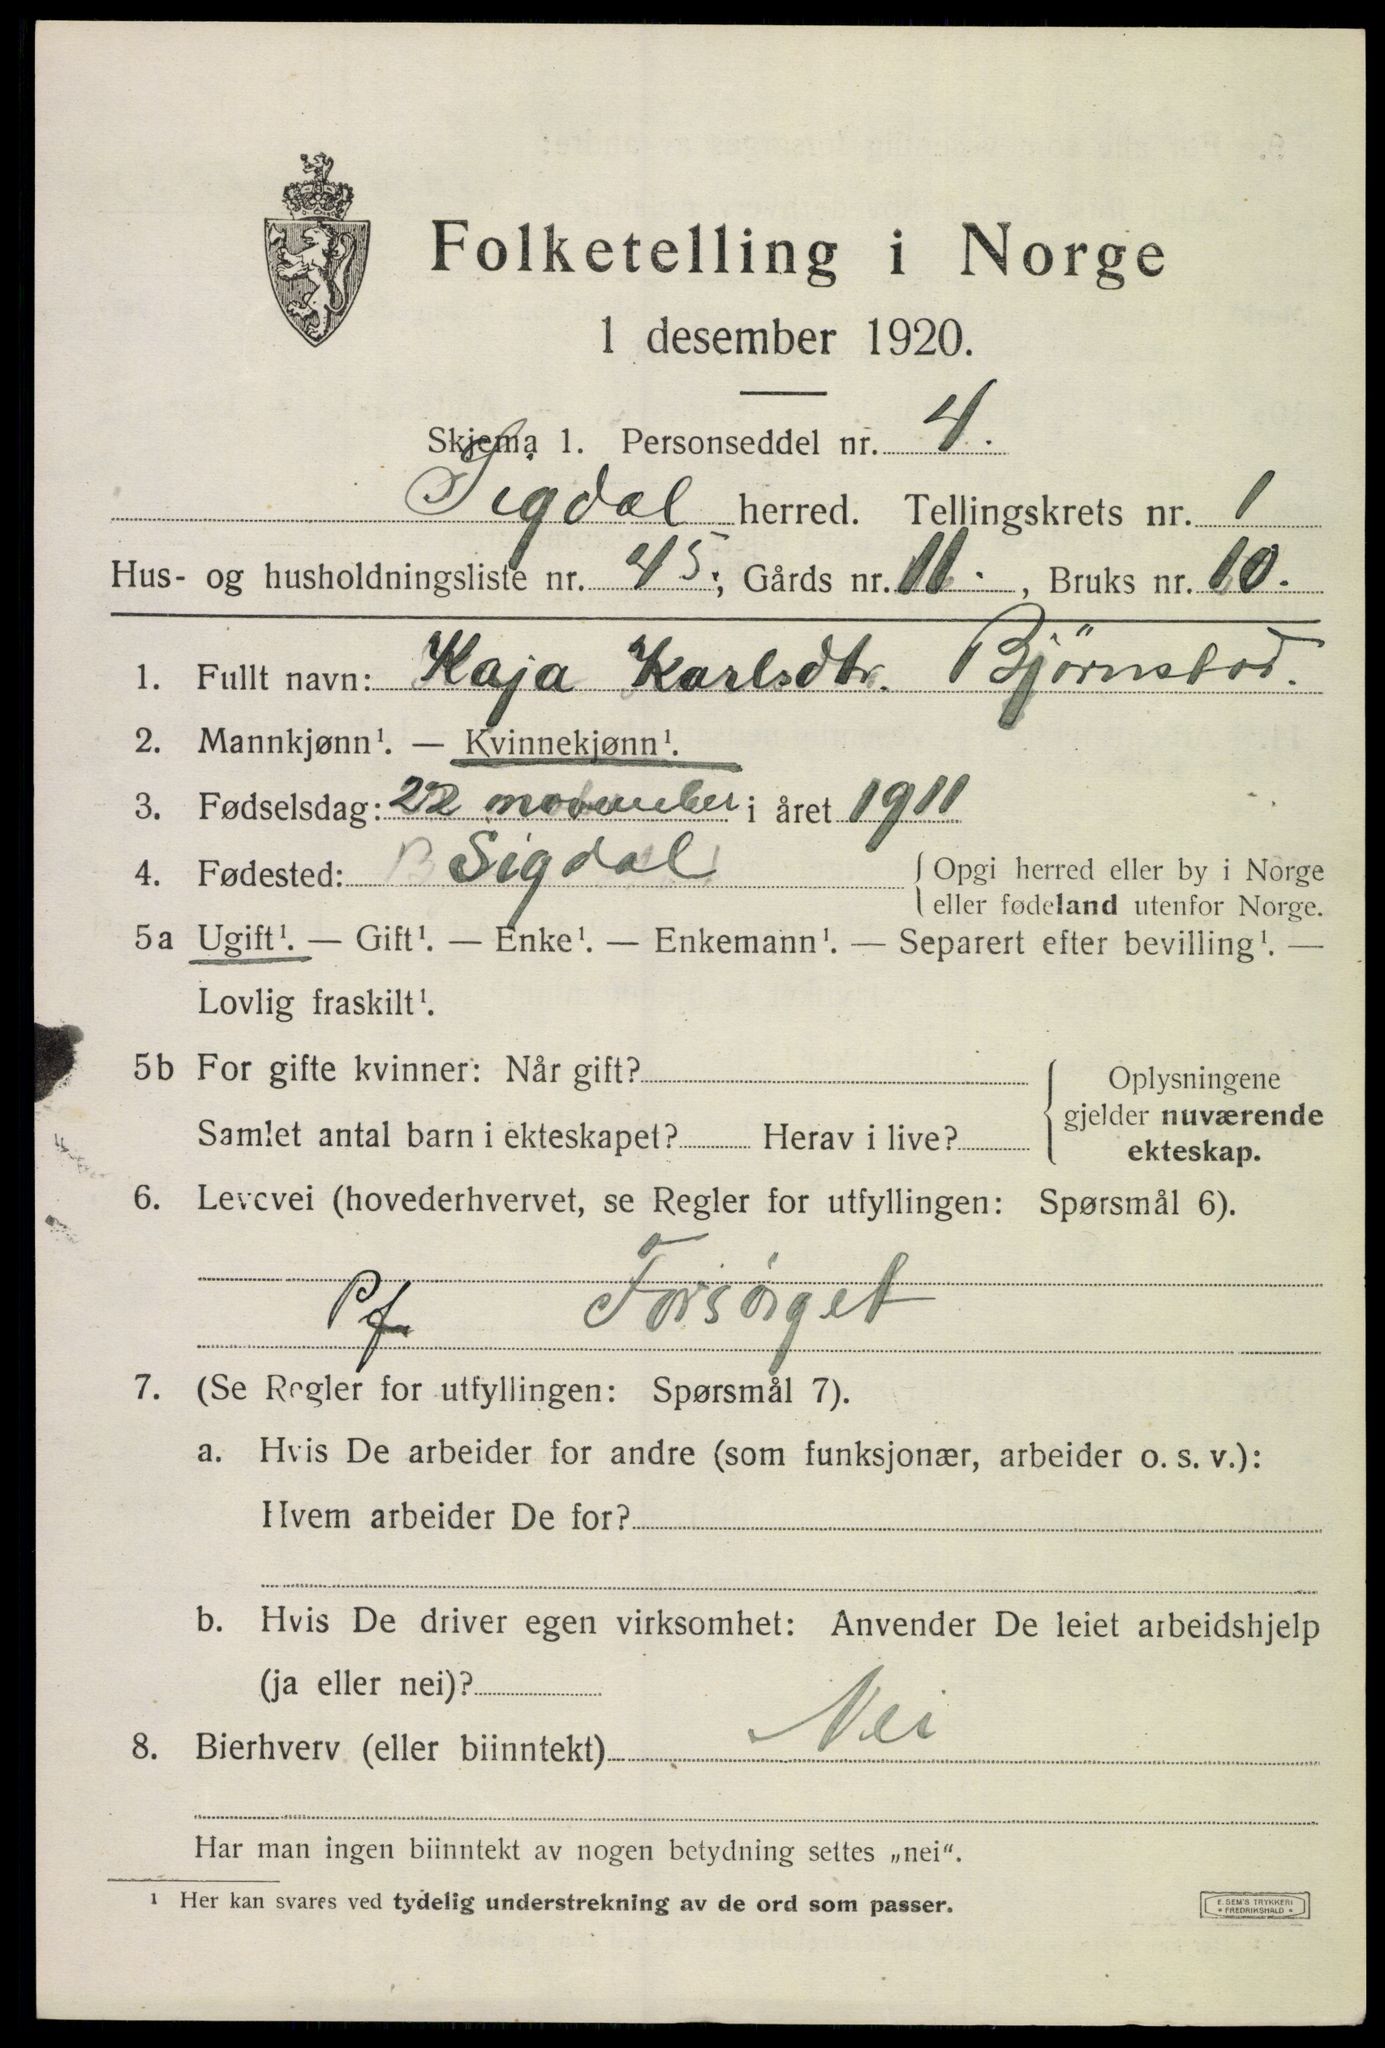 Folketelling i Norge
1 desember 1920.
Skjema 1. Personseddel nr. 4.
Sigdal herred. Tellingskrets nr. 1
Hus- og husholdningsliste nr. 45; Gårds nr. 11. , Bruks nr. 10.
1. Fullt navn: Kaja Karlsdtr. Björnstad.
2. Mannkjønn¹. — Kvinnekjønn¹.
3. Fødselsdag: 22 november i året 1911
4. Fødested: Sigdal { Opgi herred eller by i Norge
eller fødeland utenfor Norge.
5a Ugift¹. — Gift¹. — Enke¹. — Enkemann¹. — Separert efter bevilling¹. —
Lovlig fraskilt¹.
5b For gifte kvinner: Når gift?
Samlet antal barn i ekteskapet? Herav i live?
Oplysningene
gjelder nuværende
ekteskap.
6. Levevei (hovederhvervet, se Regler for utfyllingen: Spørsmål 6).
Pf Forsørget
7. (Se Regler for utfyllingen: Spørsmål 7).
a. Hvis De arbeider for andre (som funksjonær, arbeider o. s. v.):
Hvem arbeider De for?
b. Hvis De driver egen virksomhet: Anvender De leiet arbeidshjelp
(ja eller nei)?
8. Bierhverv (eller biinntekt) Nei
Har man ingen biinntekt av nogen betydning settes „nei“.
¹ Her kan svares ved tydelig understrekning av de ord som passer.
E. SEM'S TRYKKERI
* FREDRIKSHALD *